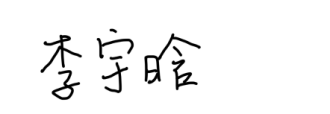 李宇晗